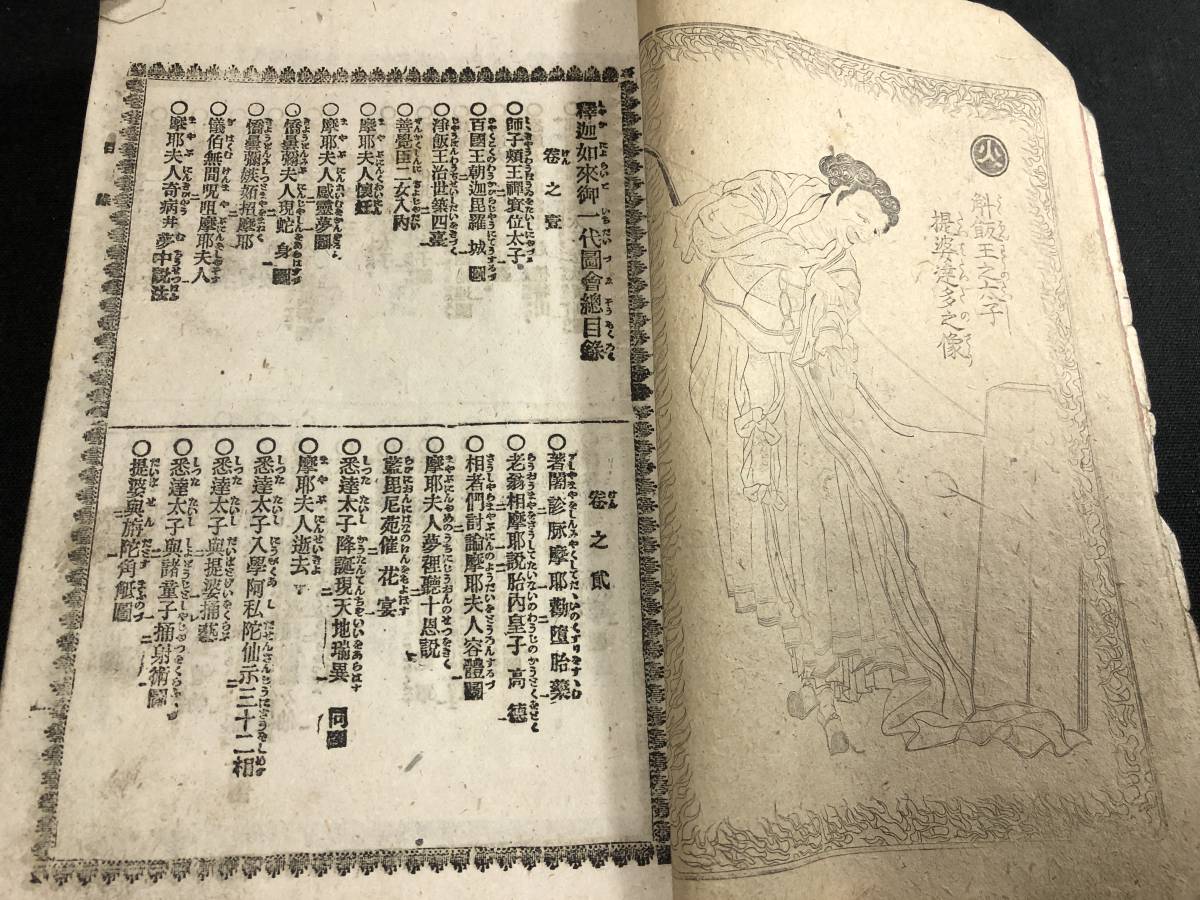 八
斛飯王之太子
提婆達多之像
釋迦如來御一代圖會總目録
卷之壹
○師子頰王禪寳位太子
○百國王朝迦毘羅城 圖
○淨飯王治世築四臺
○善覺臣二女入内
○摩耶夫人懷妊
○摩耶夫人感靈夢圖
○憍曇彌夫人現蛇身 圖
○憍曇彌嫉妬招摩耶
○儀伯無間呪咀摩耶夫人
○摩耶夫人奇病并夢中説法
卷之貳
○著闍診脉摩耶勸墮胎藥
○老翁相摩耶説胎内皇子高德
○相者們討論摩耶夫人容體圖
○摩耶夫人夢裡聽十恩説
○藍毘尼苑催花宴
○悉達太子降誕現天地瑞異 同圖
○摩耶夫人逝去
○悉達太子入學阿私陀仙示三十二相
○悉達太子與提婆捔藝
○悉達太子與諸童子捔射術圖
○提婆與旃陀角觝圖
目
録